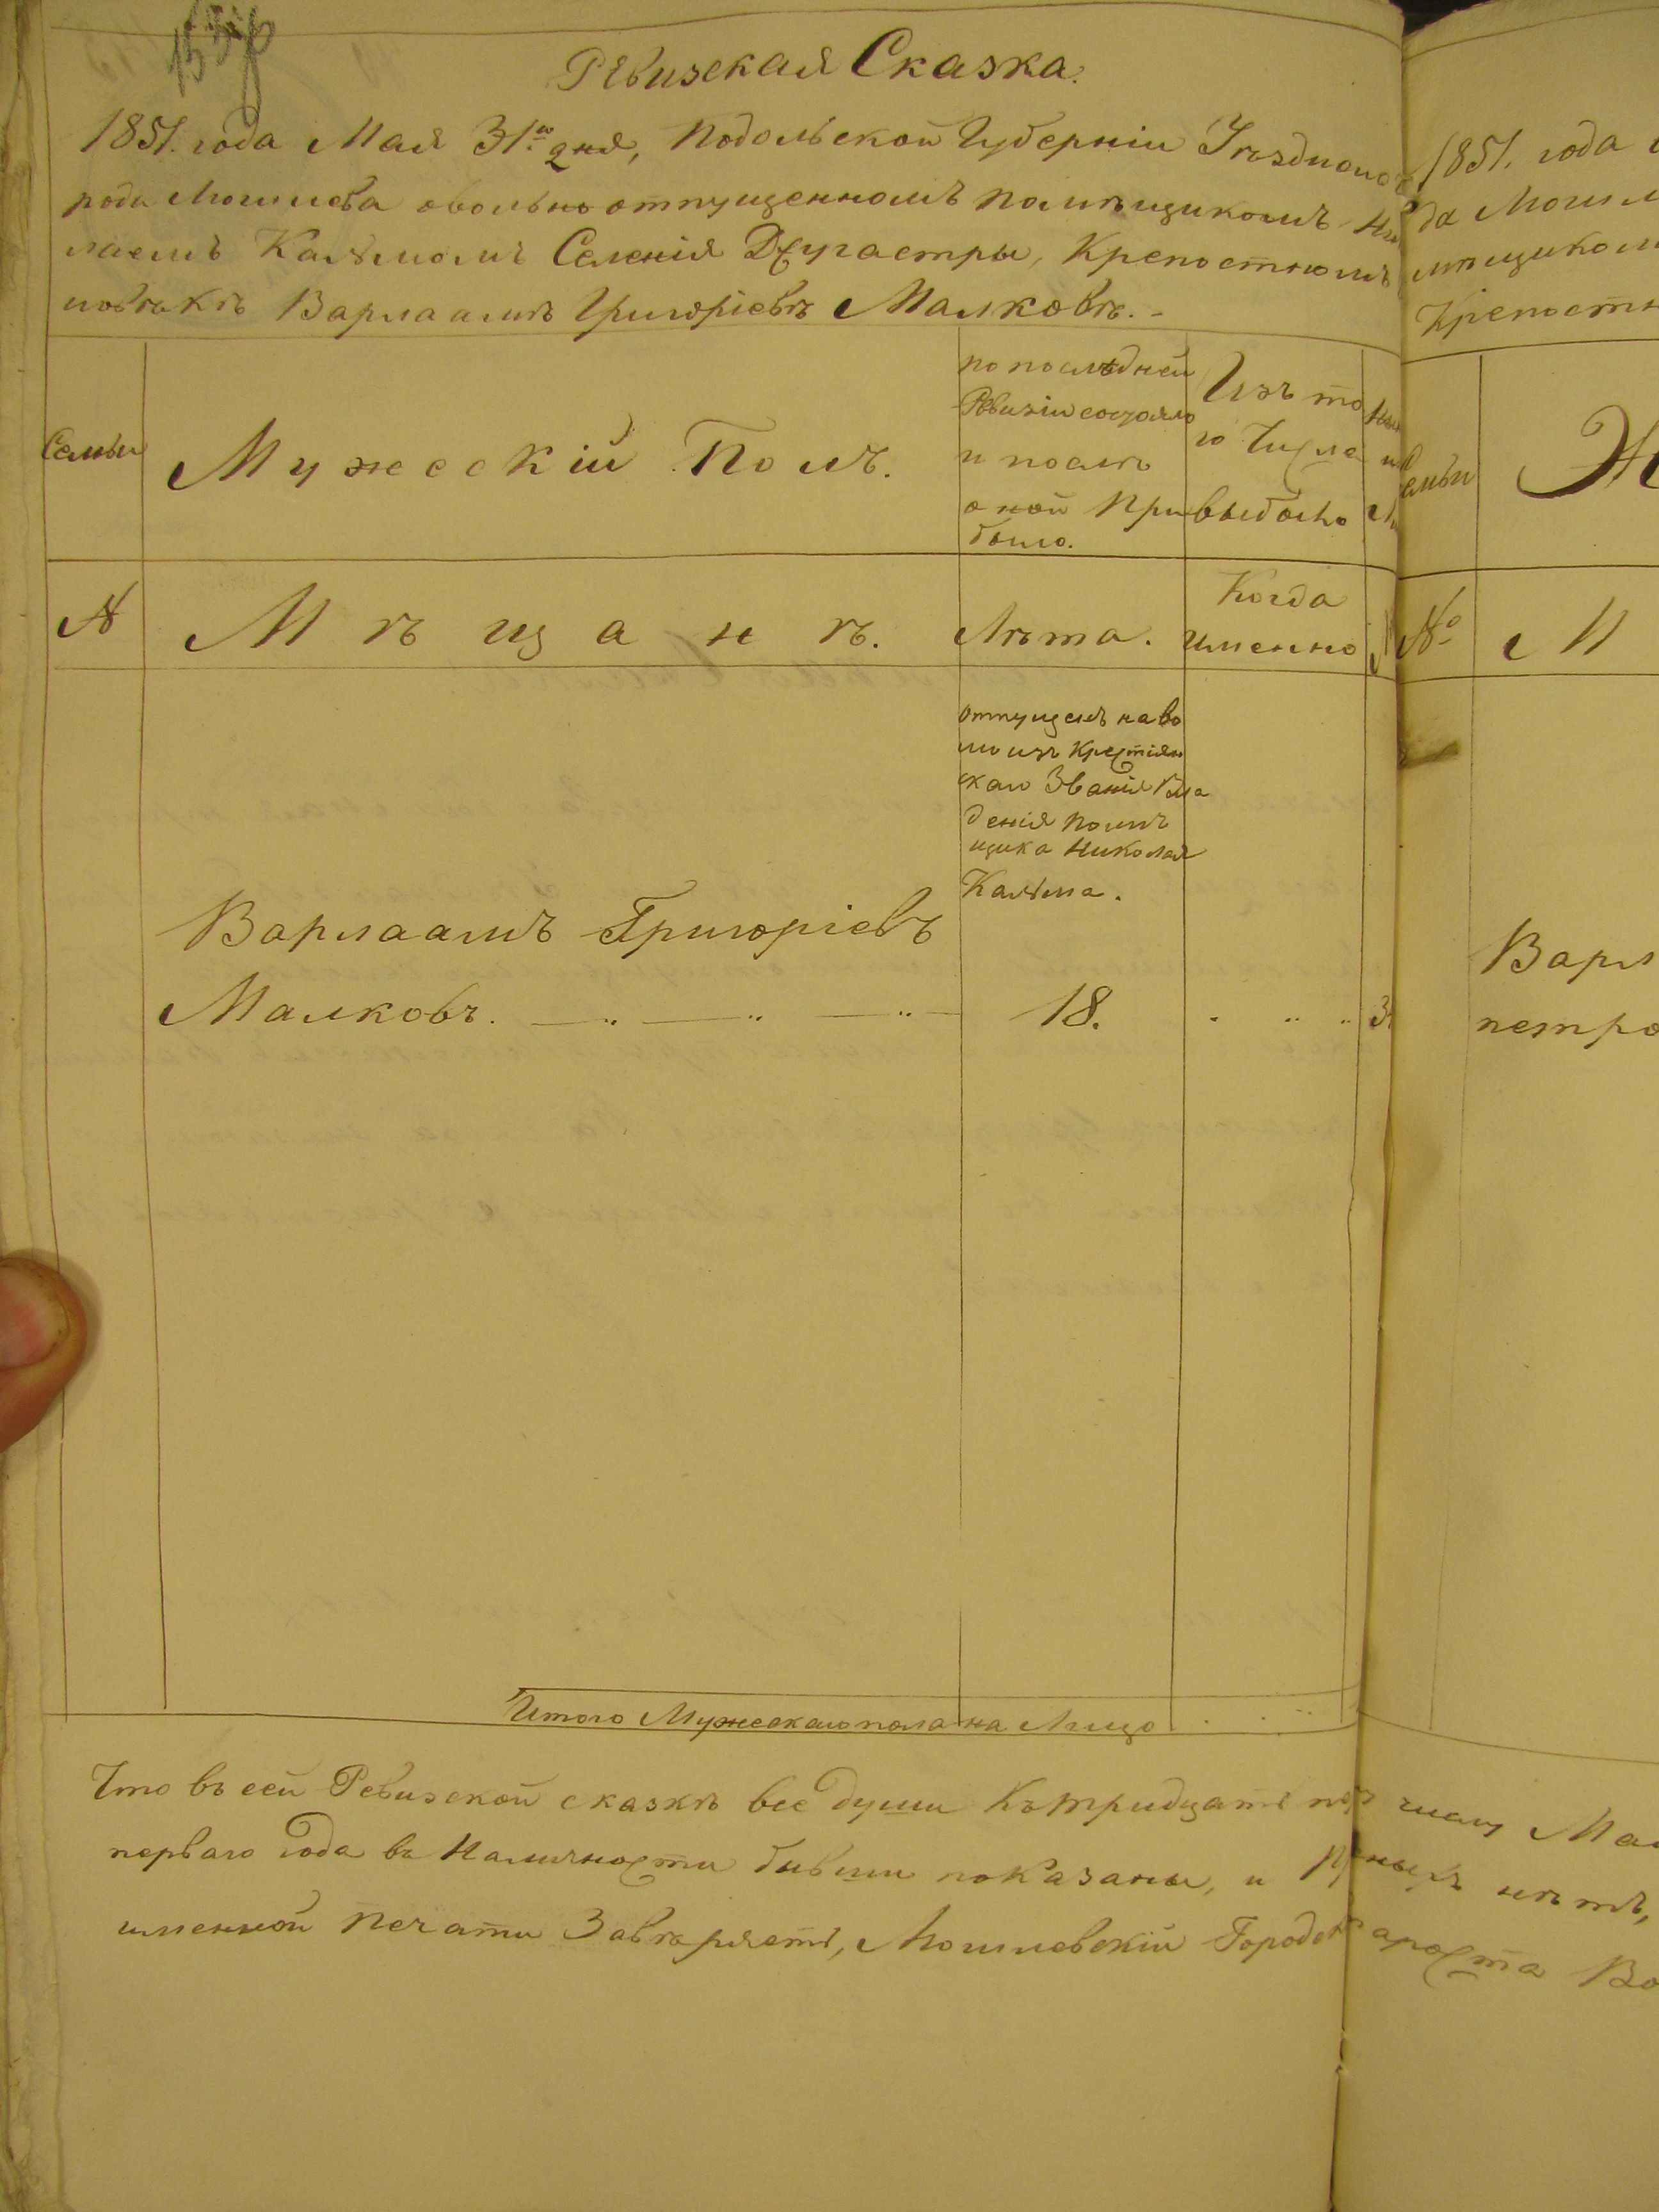 Ревизская Сказка.
1851. года Мая 31го дня, Подольской Губерніи Уѣзднаго
рода Могилева овольно отпущенномъ помѣщикомъ Ни
лаемъ Кальмомъ Селенія Другастры, Крепостномъ
ловѣкѣ Варлаамѣ Григоріевѣ Малковѣ.
Семьи
Мужескій Полъ.
по последней
Ревизіи состояло
и послѣ
оной при
было.
Изъ то
го Числа
выбыло
№
Мѣщанѣ.
Лѣта.
Когда
именно
отпущенъ на во
лю изъ Крестіян
скаго Званія Вла
денія помѣ
щика Николая
Кальма.
Варлаамъ Григоріевъ
Малковъ.
18.
Итого Мужескаго пола на Лицо
Что въ сей Ревизской сказкѣ все души Къ тридцать пер
перваго года въ Наличности бывши показаны, и
именной Печати Завѣряетъ, Могилевскій Городск
1851. года
да Могил
мѣщиком
Крепостн
№
М
Варл
петро
числу Мая
ныхъ нѣтъ,
ароста Во